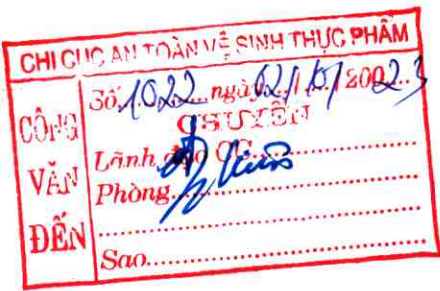 CHI CỤC AN TOÀN VỆ SINH THỰC PHẨM
CÔNG VĂN ĐẾN
Số 1022 ngày 02/10/2023
CHUYỂN
Lãnh đạo CC
Phòng
Sao